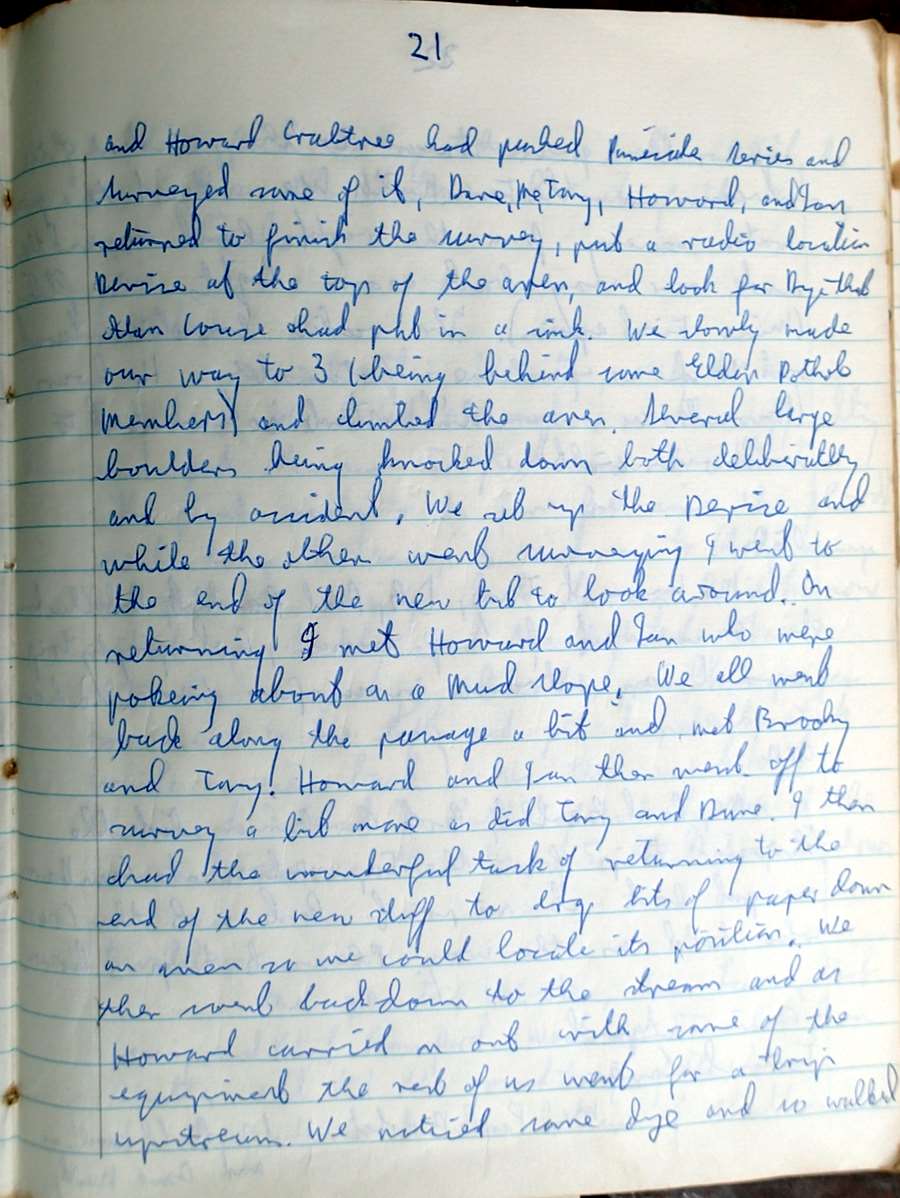 21
and Howard Crabtree had pushed series and
surveyed some of it, Dave, Me, Tony, Howard, and Ian
returned to finish the survey, put a radio location
Devise at the top of the aven, and look for Dye that
Alan had put in a sink. We slowly made
our way to 3 (being behind some Eldon Pothole
Members) and climbed the aven. Several large
boulders being knocked down both deliberatley
and by accident. We set up the Devise and
while the other went surveying I went to
the end of the new bit to look around. On
returning I met Howard and Ian who were
pokeing about on a Mud slope. We all went
back along the passage a bit and met Brocky
and Tony. Howard and Ian then went off to
survey a bit more as did Tony and Dave. I then
had the wonderful task of returning to the
end of the new stuff to drop bits of paper down
an aven so we could locate its position. We
then went back down to the stream and as
Howard carried on out with some of the
equipment the rest of us went for a trip
upstream. We noticed some dye and so walked